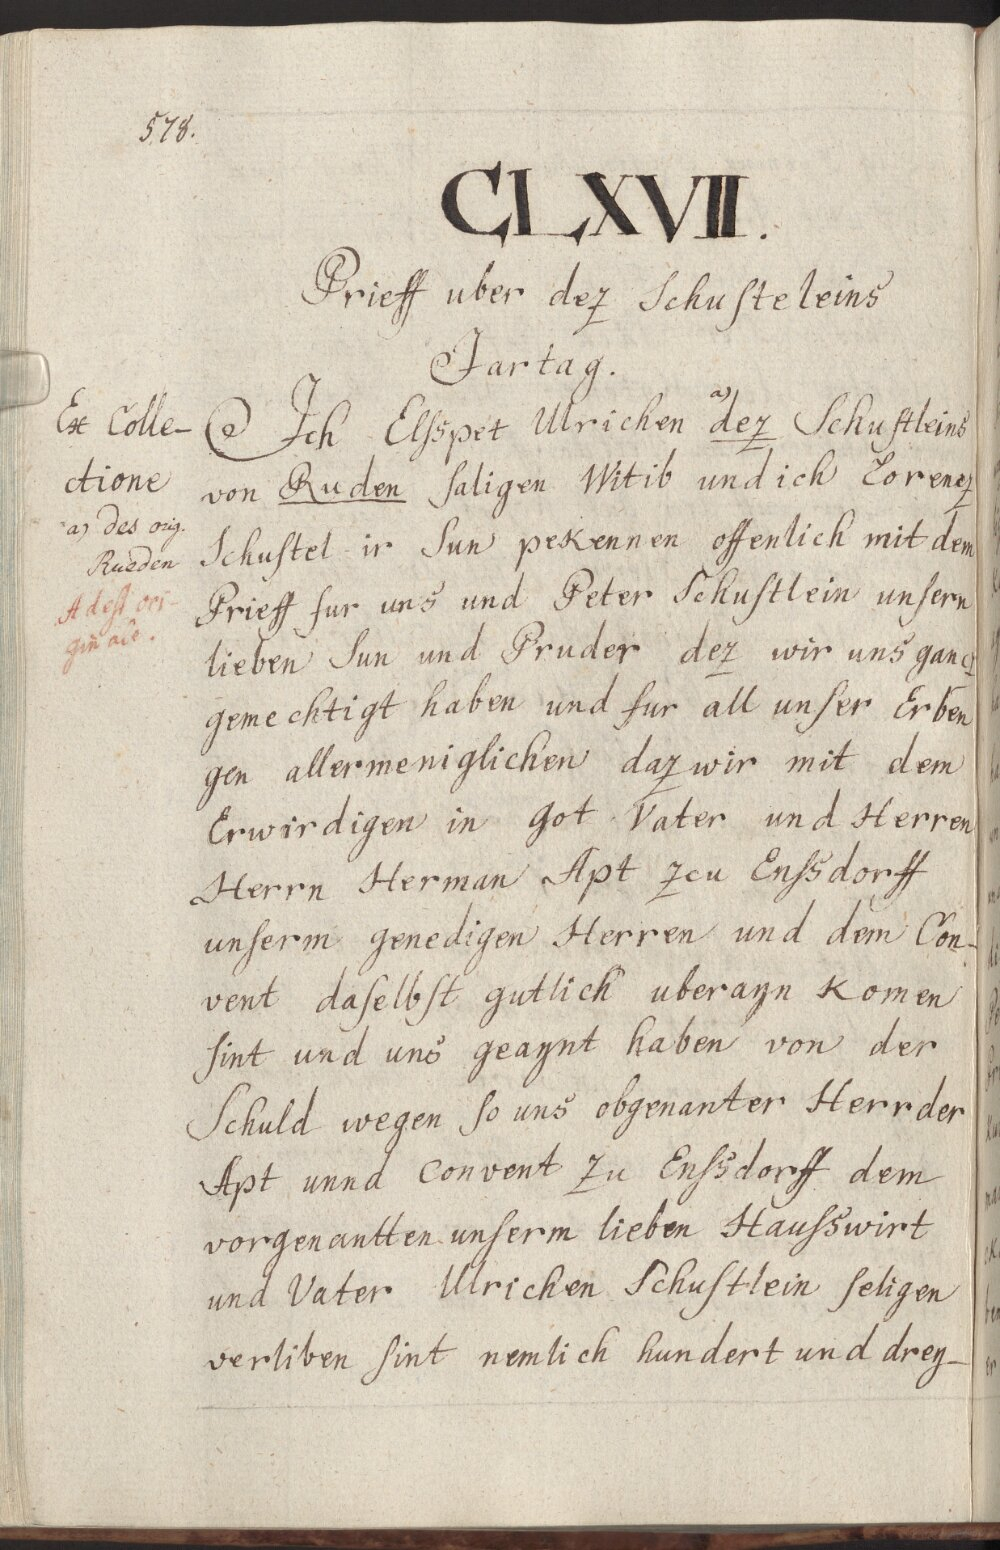 578.
CLXVII.
Prieff uber dez Schusteleins
Jartag.
Ex Colle-
ctione
a) des orig.
Rueden
Adest ori-
ginale.
Ich Elsspet Ulrichen a) dez Schustleins
von Ruden saligen Witib und ich Lorencz
Schustel ir Sun pekennen offenlich mit dem
Prieff fur uns und Peter Schustlein unsern
lieben Sun und Pruder dez wir uns gancz
gemechtigt haben und fur all unser Erben
gen allermeniglichen daz wir mit dem
Erwirdigen in got Vater und Herren
Herrn Herman Apt zcu Enssdorff
unserm genedigen Herren und dem Con-
vent daselbst gutlich uberayn komen
sint und uns geaynt haben von der
Schuld wegen so uns obgenanter Herr der
Apt unnd Convent zu Enssdorff dem
vorgenantten unserm lieben Hausswirt
und Vater Ulrichen Schustlein seligen
verliben sint nemlich hundert und drey-